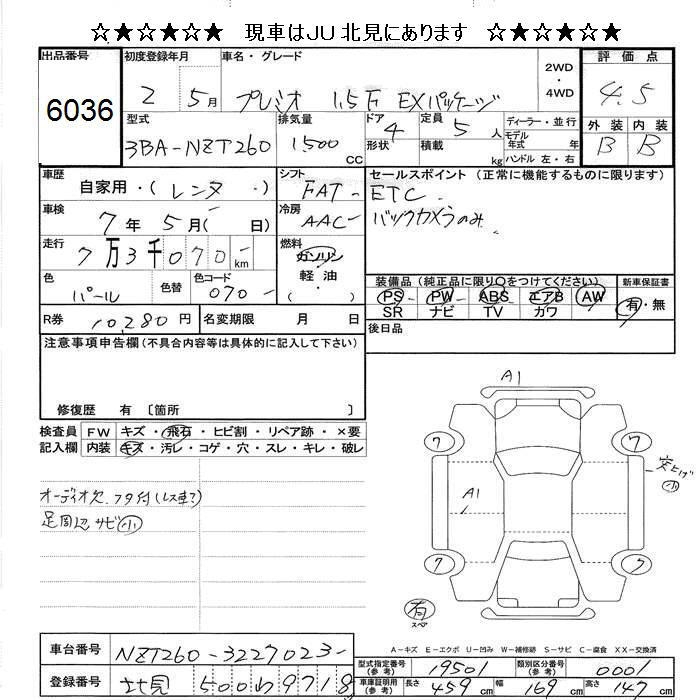 ☆★☆★☆★ 現車はJU 北見にあります ☆★☆★☆★
出品番号 6036
初度登録年月 2 5月
車名・グレード プレミオ 1.5F EXパッケージ
2WD・4WD
評価点 4.5
外装 B 内装 B
型式 3BA-NZT260
排気量 1500 cc
ドア 4 形状
定員 5 人 積載 kg
ディーラー・並行
モデル年式 年
ハンドル 左・右
車歴 自家用・(レンタ・)
シフト FAT
セールスポイント (正常に機能するものに限ります)
ETC
バックカメラのみ
車検 7年 5月( 日)
冷房 AAC
走行 7万3千070km
燃料 ガソリン・軽油( )
色 パール 色替
色コード 070
装備品(純正品に限り○をつけてください)
PS PW ABS エアB AW
SR ナビ TV カワ
新車保証書 有・無
R券 10,280円
名変期限 月 日
後日品
注意事項申告欄(不具合内容等は具体的に記入して下さい)
修復歴 有 〔箇所 〕
検査員記入欄
FW キズ・飛石・ヒビ割・リペア跡・×要
内装 キズ・汚レ・コゲ・穴・スレ・キレ・破レ
オーディオ欠.フタ付(レス車?)
足周辺サビ小
A1
7 7
A1
突上げ 小
7 7
有
スペア
A-キズ E-エクボ U-凹み W-補修跡 S-サビ C-腐食 XX-交換済
車台番号 NZT260-3227023
型式指定番号(参考) 19501
類別区分番号(参考) 0001
登録番号 北見 500わ9718
車庫証明用(参考) 長さ 459cm 幅 169cm 高さ 147cm